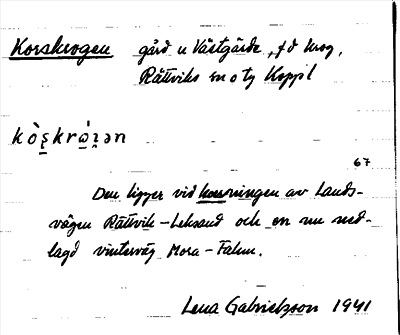 Korskrogen gård u Västgärde, f d krog,
Rättviks sn o tg Koppl
kò̀ʂkrὼɪ̯ən
67
Den ligger vid korsningen av Lands-
vägen Rättvik - Leksand och en nu ned-
lagd vinterväg Mora - Falun.
Lena Gabrielsson 1941